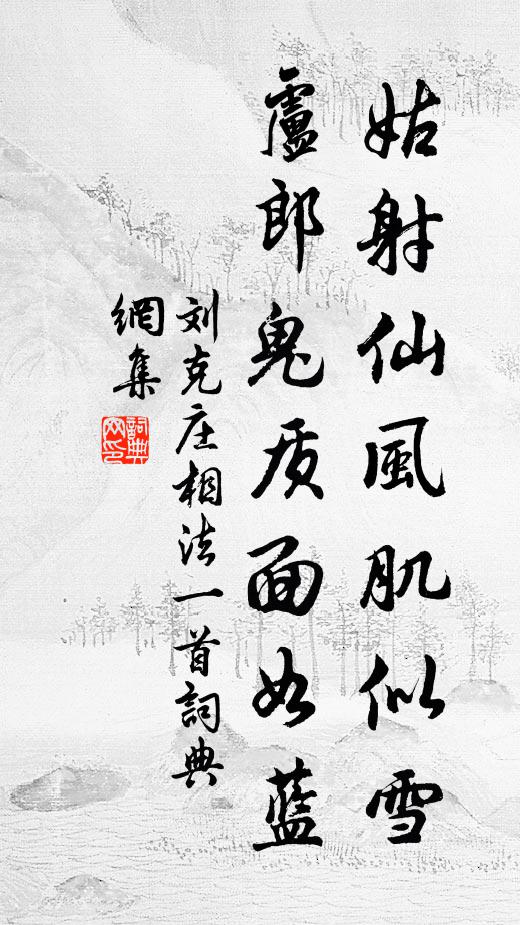 姑射仙風肌似雪
盧郎鬼质面如藍
刘克庄相法一首詞典
網集
詞典
网印